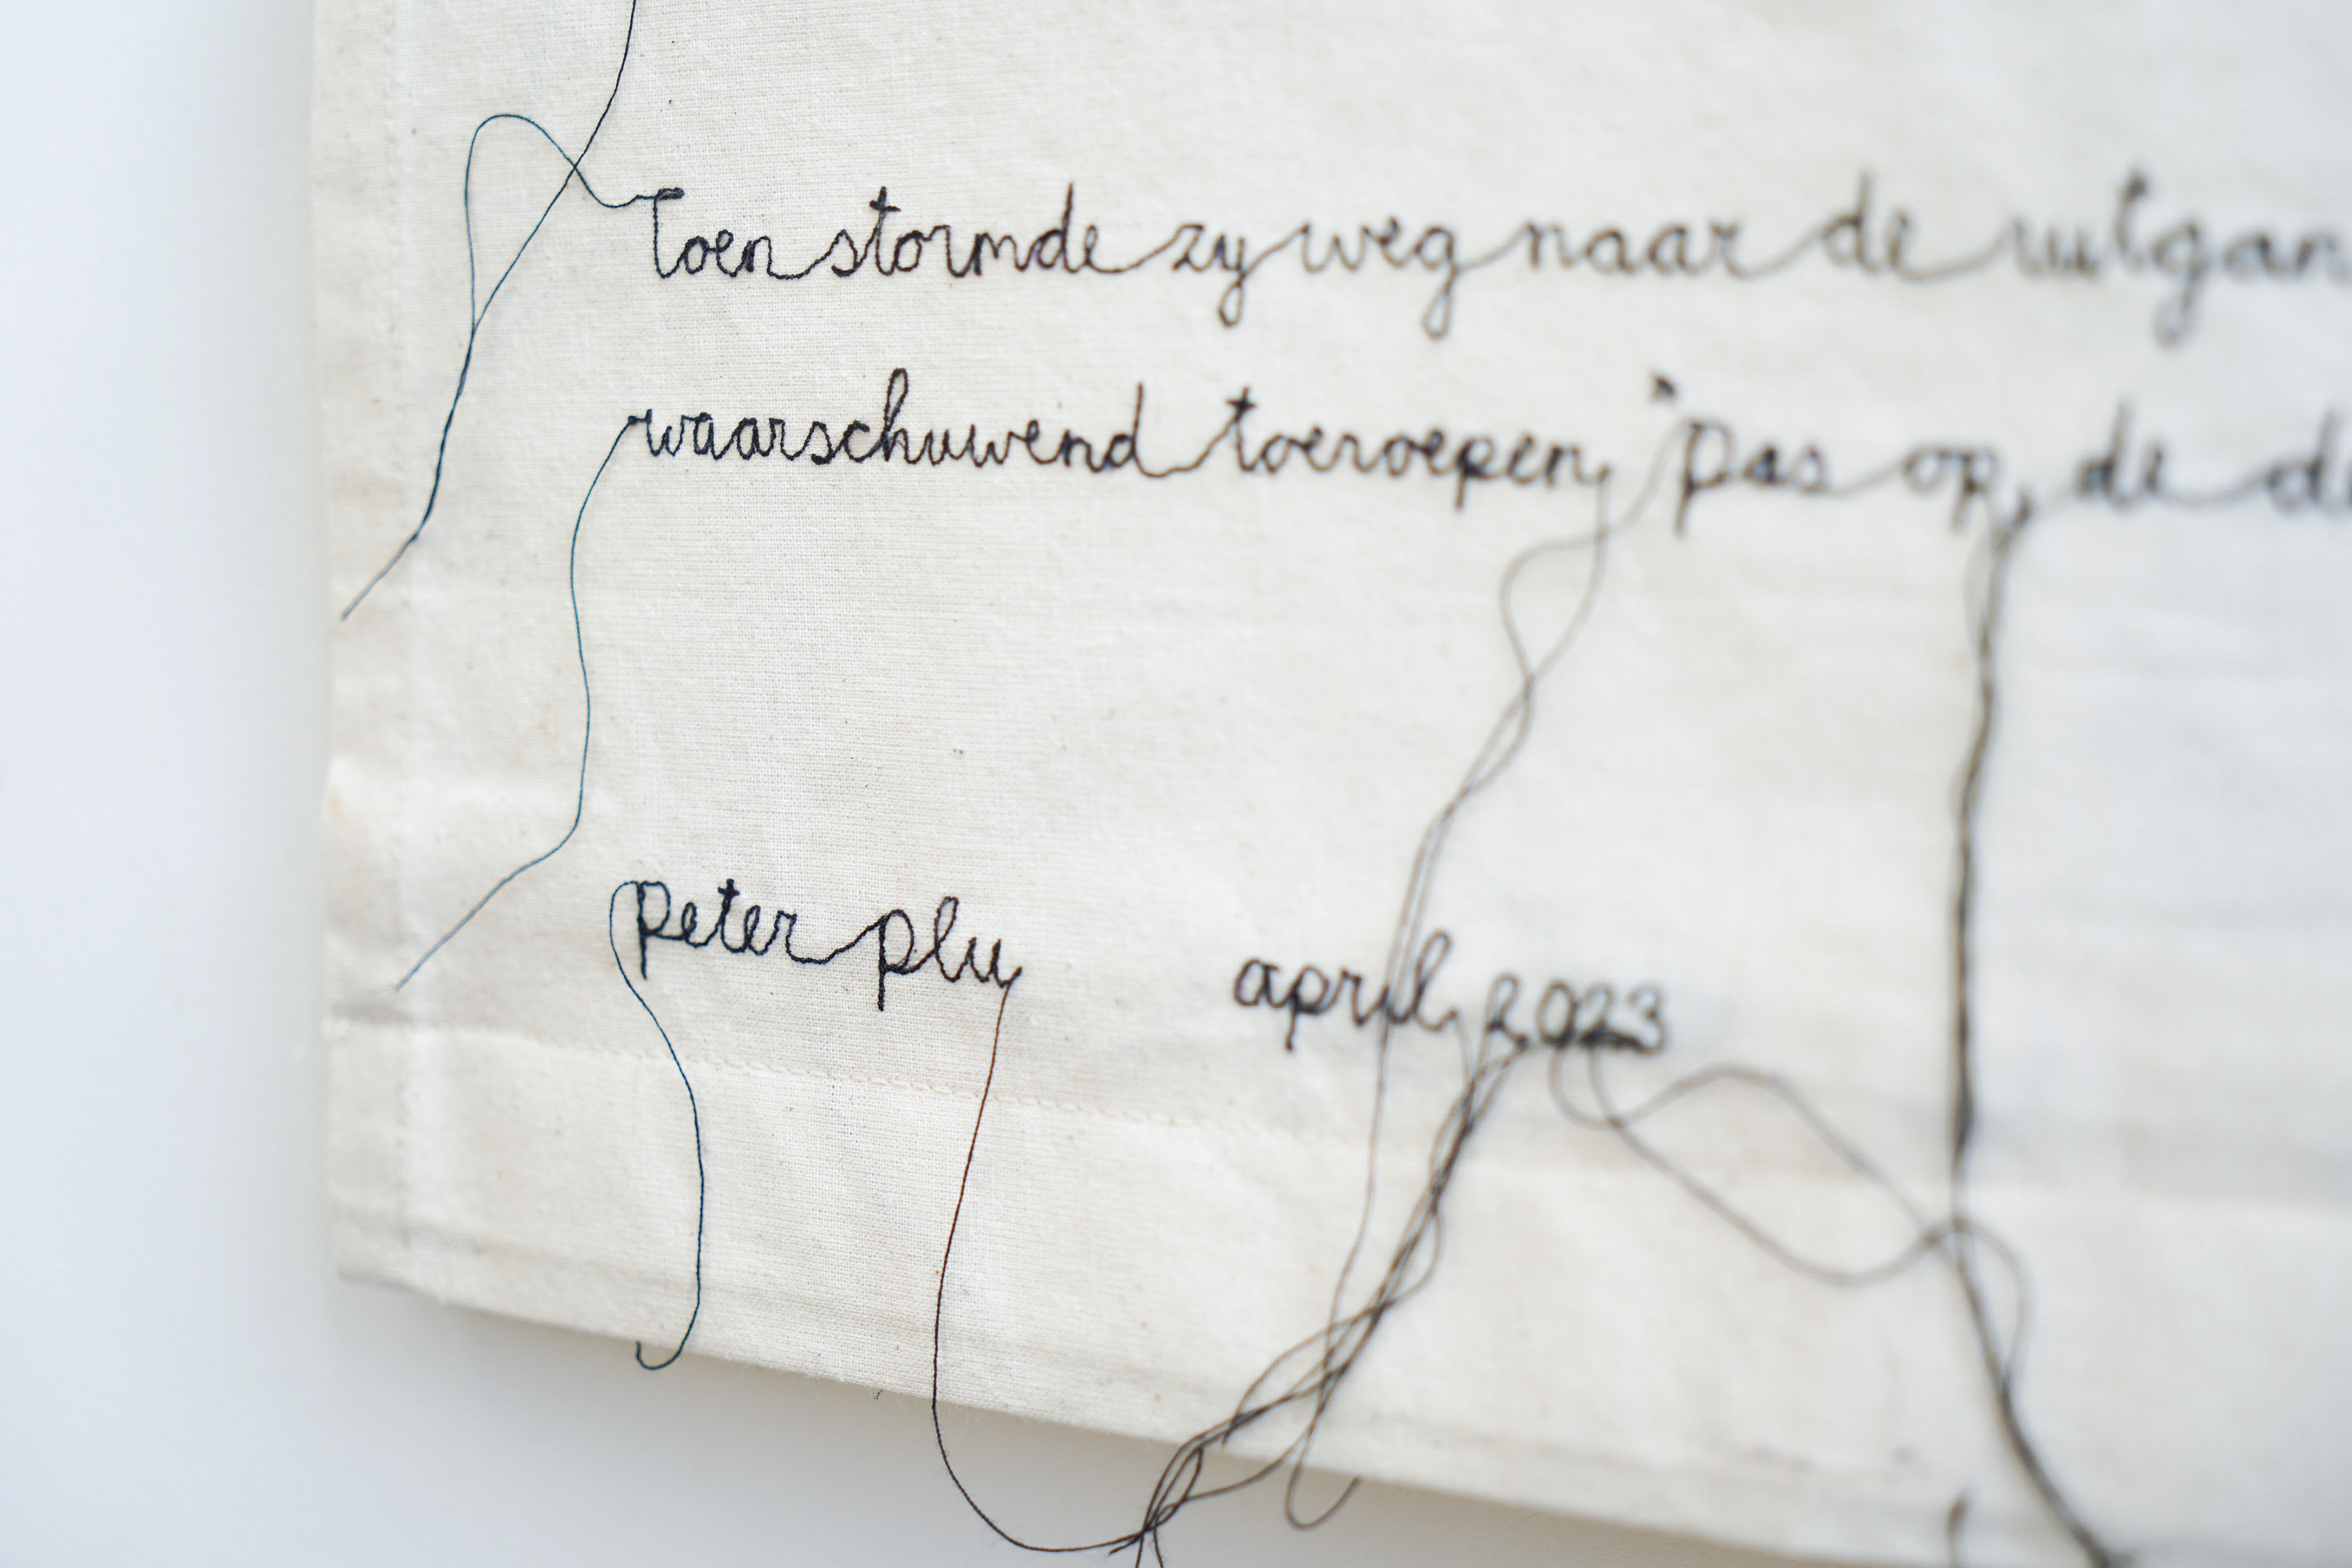 Toen stormde zy weg naar de uitgan
waarschuwend toeroepen, "Pas op, de de
peter plu april 2023